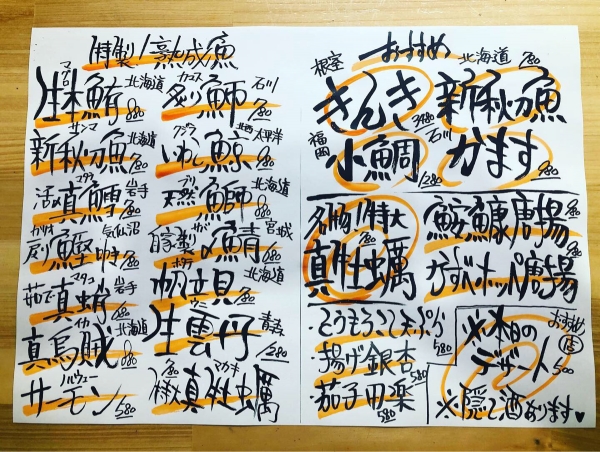 特製!熟成魚
マグロ
生本鮪 北海道 880
カマス
炙り魳 石川 780
サンマ
新秋刀魚 北海道 780
クジラ
いわし鯨 北西太平洋
活〆真鱈 岩手 780
ブリ
天然鰤 北海道 980
カツオ
戻り鰹 気仙沼
自家製〆鯖 宮城 680
マダコ
茹で真蛸 岩手 680
ホタテ
帆立貝 北海道 780
イカ
真烏賊 北海道 680
ウニ
生雲丹 青森 1280
ノルウェー
サーモン 580
マガキ
真牡蠣 780
おすすめ
根室
きんき 3980
北海道 780
新秋刀魚
福岡
小鯛 1280
石川
かます 980
特大
真牡蠣 780
鮟鱇唐揚 780
かすべホッペ唐揚 780
・とうもろこし天ぷら 580
揚げ銀杏 580
茄子田楽 580
おすすめ
※本日の
デザート 500
※隠し酒あります♥